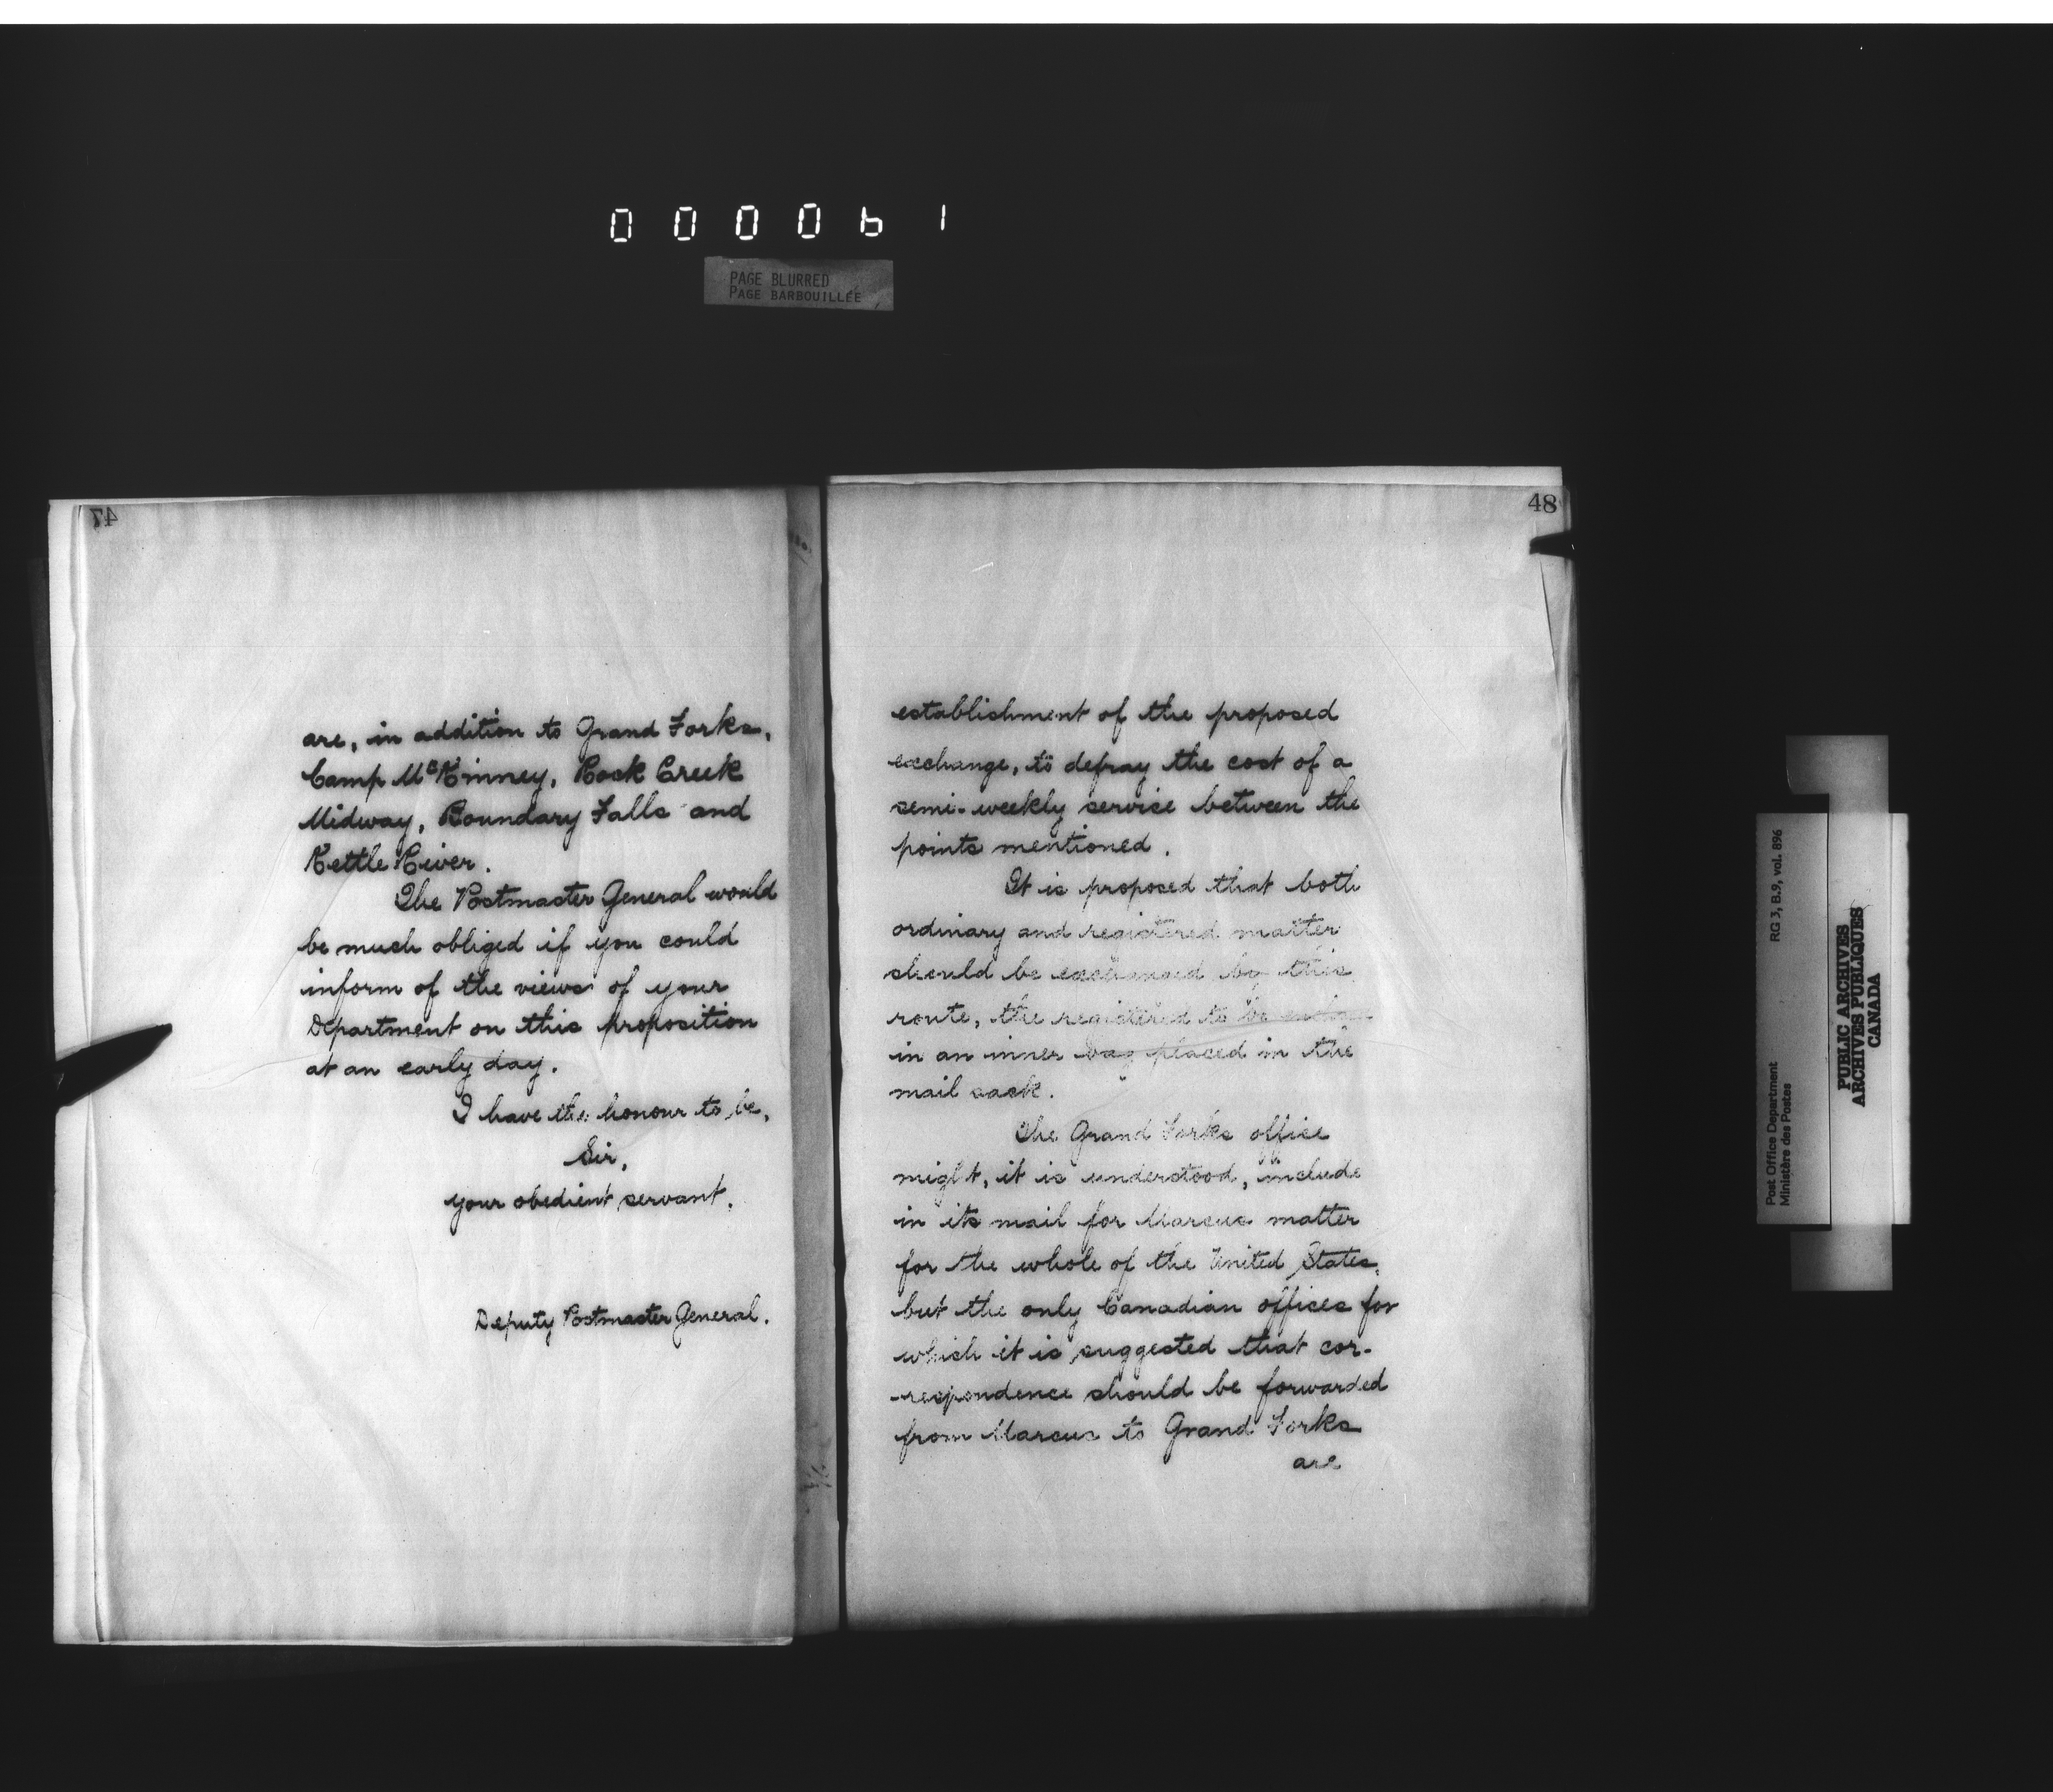 000061
PAGE BLURRED
PAGE BARBOUILLÉE
47
are, in addition to Grand Forks,
Camp McKinney, Rock Creek
Midway, Boundary Falls and
Kettle River.
The Postmaster General would
be much obliged if you could
inform of the views of your
Department on this proposition
at an early day.
I have the honour to be,
Sir,
your obedient servant.
Deputy Postmaster General.
48
establishment of the proposed
exchange, to defray the cost of a
semi-weekly service between the
points mentioned.
It is proposed that both
ordinary and registered matter
should be exchanged by this
route, the registered to be
in an inner bag placed in the
mail sack.
The Grand Forks office
might, it is understood, include
in its mail for Marcus matter
for the whole of the United States,
but the only Canadian offices for
which it is suggested that cor-
-respondence should be forwarded
from Marcus to Grand Forks
are
Post Office Department
Ministère des Postes
RG 3, B.9, vol. 896
PUBLIC ARCHIVES
ARCHIVES PUBLIQUES
CANADA